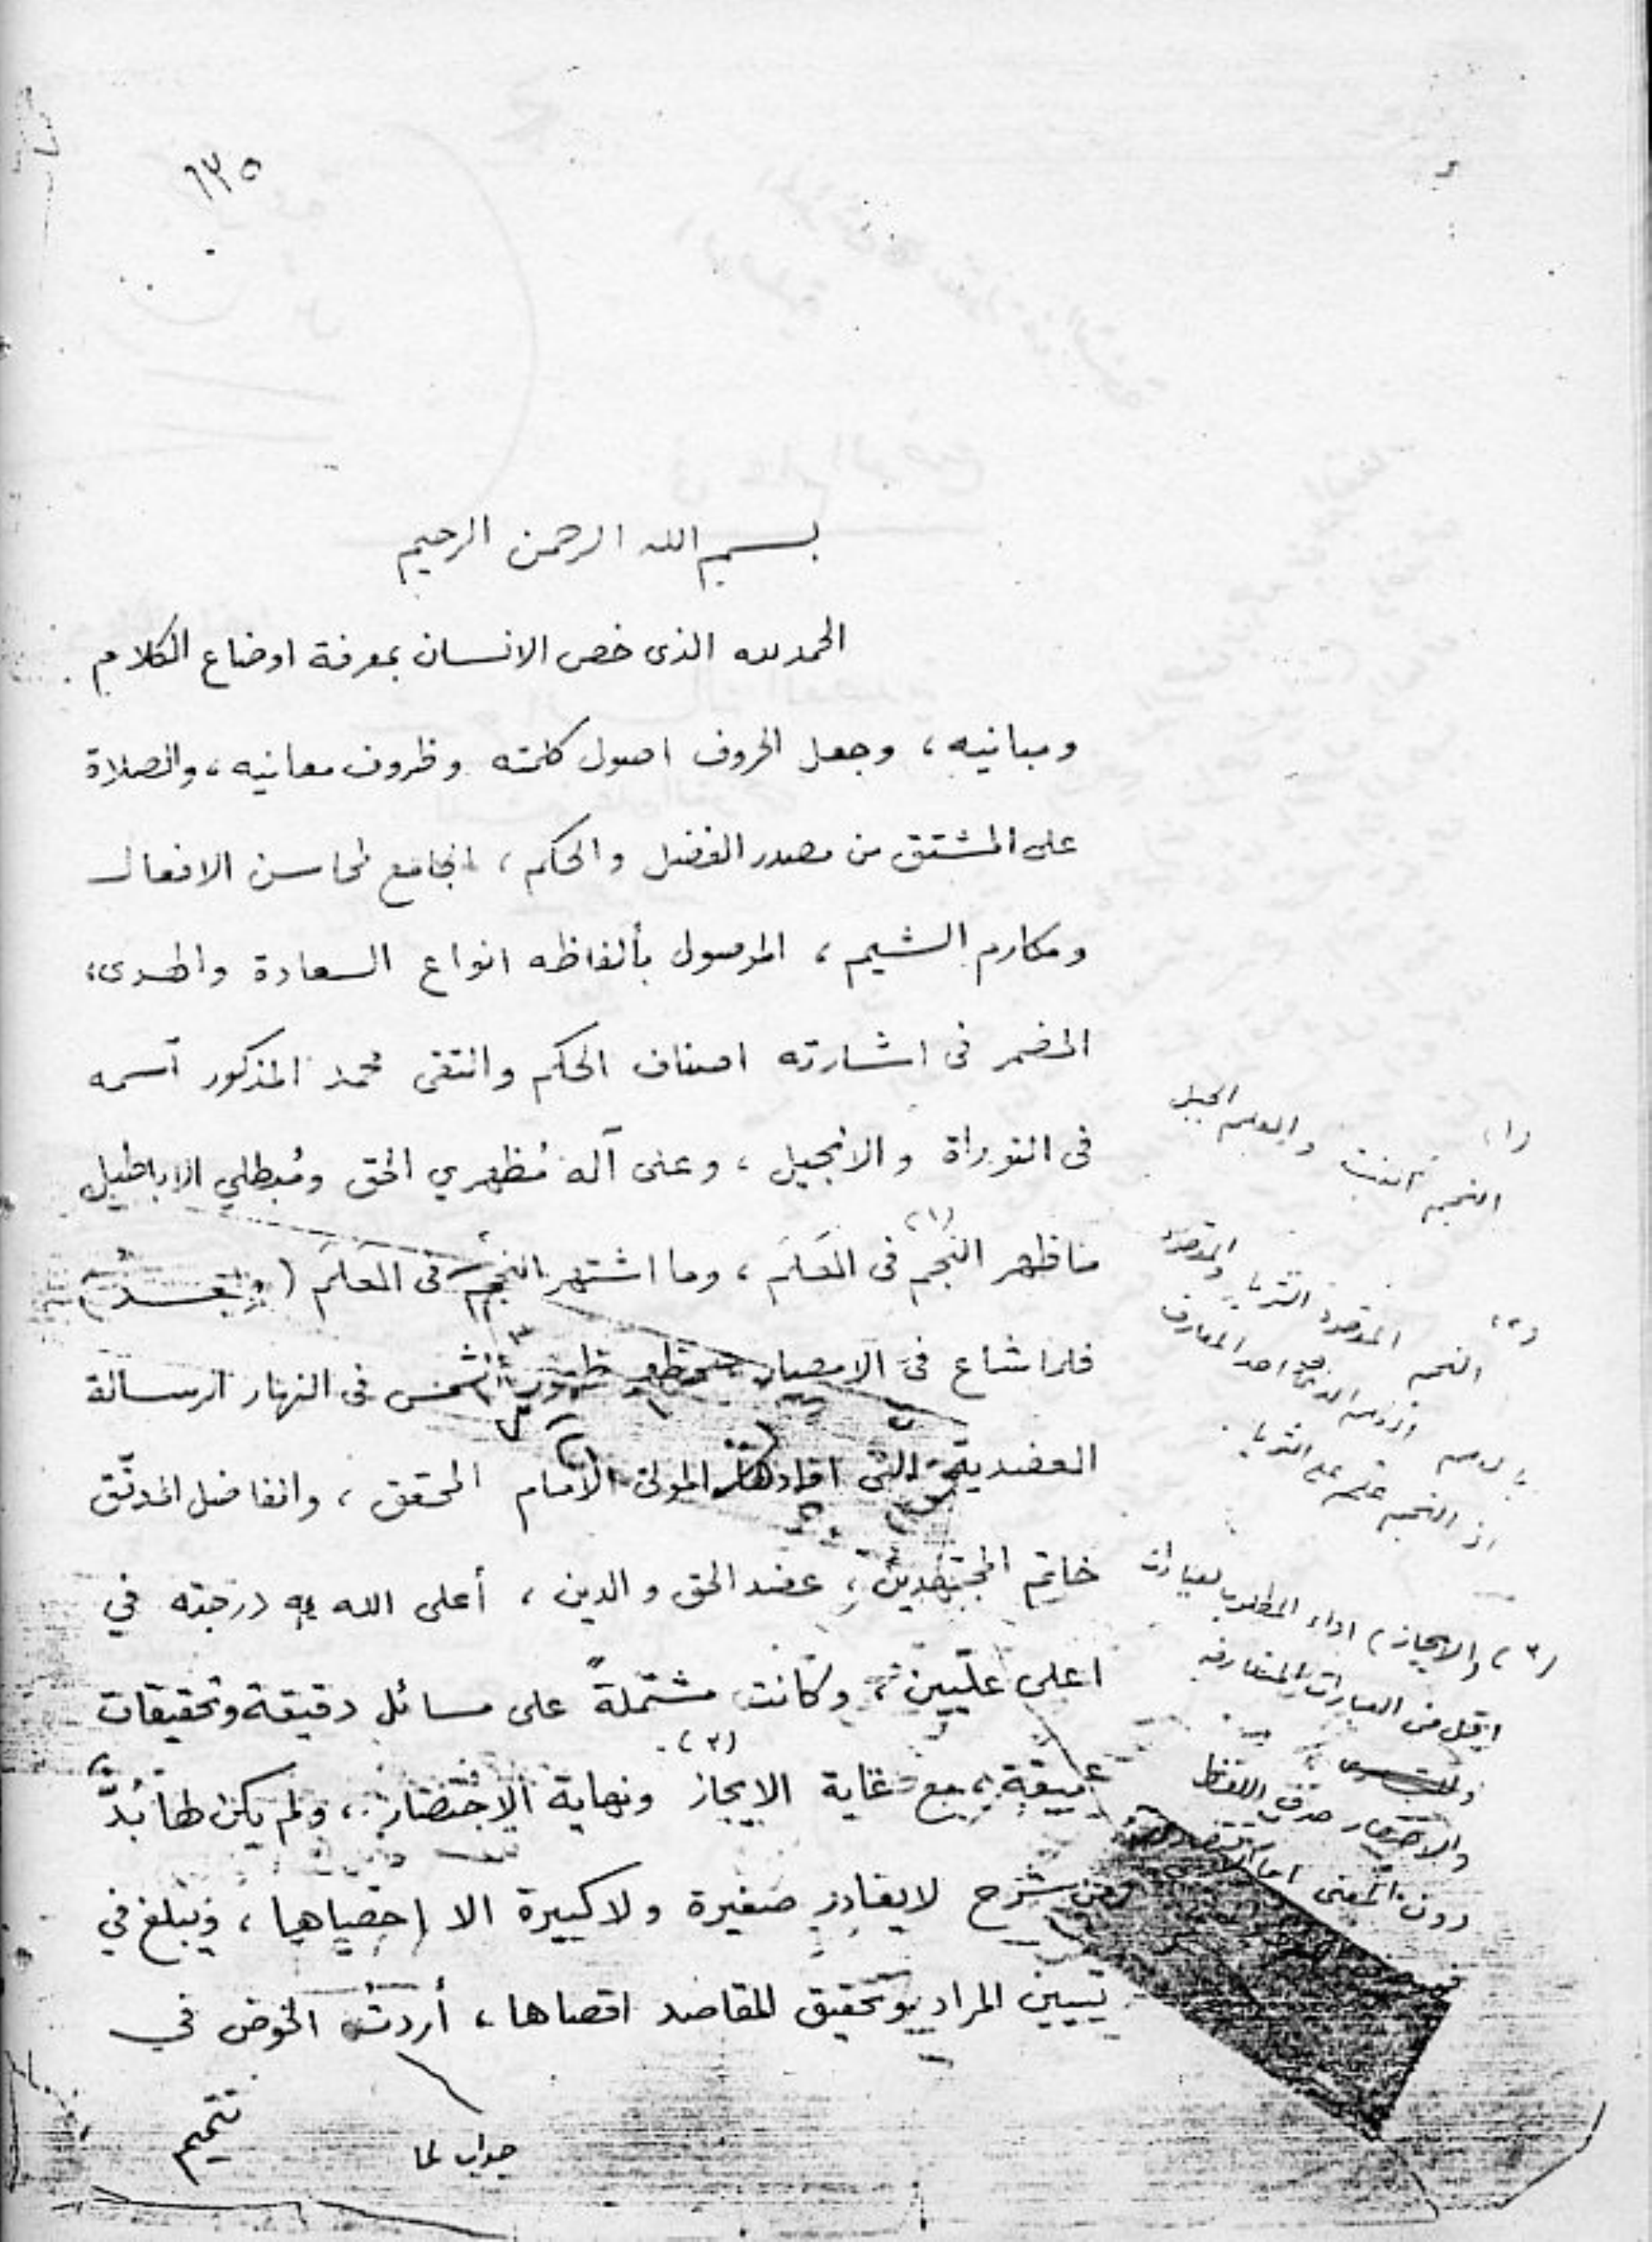 ٦٣٥
بسم الله الرحمن الرحيم
الحمد لله الذى خص الانسان بمعرفة اوضاع الكلام
ومبانيه ، وجعل الحروف اصول كلمته وظروف معانيه ، والصلاة
على المشتق من مصدر الفضل والحكم ، الجامع لمحاسن الافعال
ومكارم الشيم ، الموصول بألفاظه انواع السعادة والهدى ،
المضمر فى اشارته اصناف الحكم والتقى محمد المذكور اسمه
فى التوراة والانجيل ، وعلى آله مُظهري الحق ومُبطلي الاباطيل
ما ظهر النجم (١) فى العَلَم ، وما اشتهر النجم فى العَلَم ( وبعــدُ )
فلما شاع فى الامصار الشمس فى النهار الرسالة
العضدية التى افادها المولى الامام المحقق ، والفاضل المدقّق
خاتم المجتهدين ، عضد الحق والدين ، أعلى الله درجته في
اعلى علّيين ، وكانت مشتملةً على مسائل دقيقة وتحقيقات
عميقة ، مع غاية الايجاز (٣) ونهاية الاختصار ، ولم يكن لها بُدٌّ
من شرح لا يغادر صغيرة ولا كبيرة الا احصياها ، ويبلغ في
تبيين المراد وتحقيق المقاصد اقصاها ، أردت الخوض في
جواب لما
تتميم
(١)
النجم النبت والعلم الجبل
(٢)
النجم المقصود الثريا والمقصود
اذ النجم علم على الثريا .
(٣) والايجاز ) اداء المطلوب بعبارات
اقل من العبارات المتعارفه
والاختصار حذف اللفظ
دون المعنى